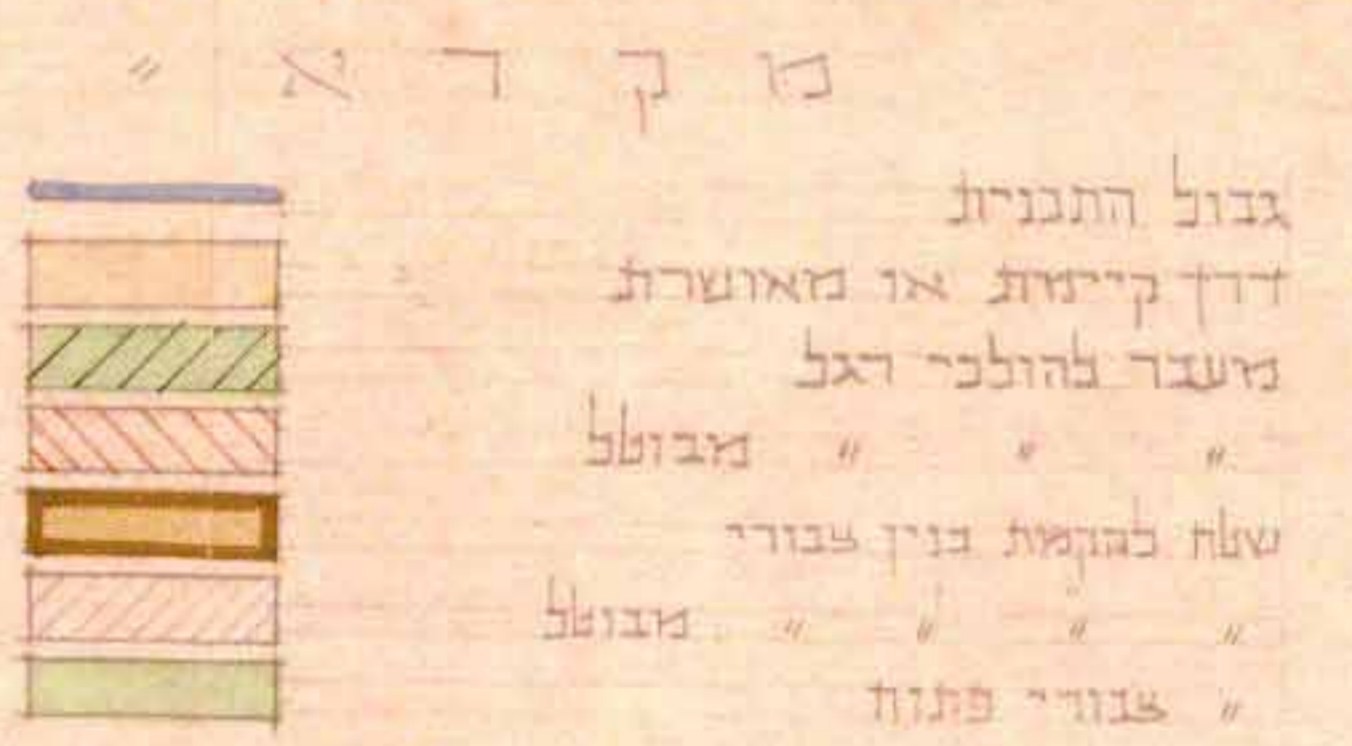 מקרא "
גבול התכנית
דרך קיימת או מאושרת
מעבר להולכי רגל
" " " מבוטל
שטח להקמת בנין צבורי
" " " " מבוטל
" צבורי פתוח